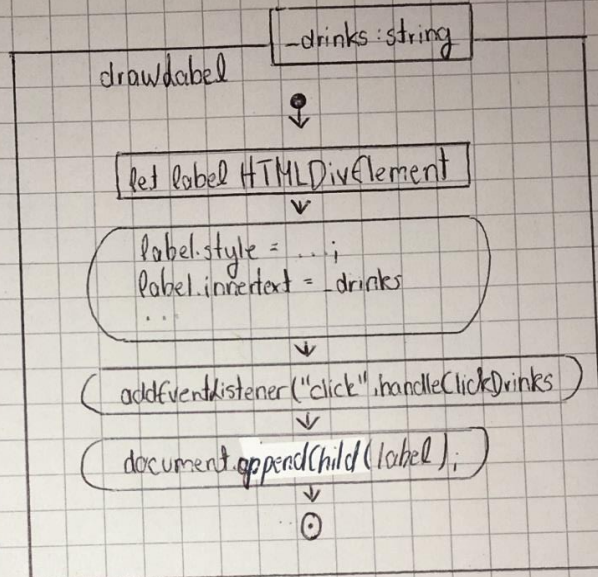 _drinks:string
drawLabel
let label HTMLDivElement
label.style = ...;
label.innertext = _drinks
...
addEventListener("click",handleClickDrinks
document.appendChild(label);